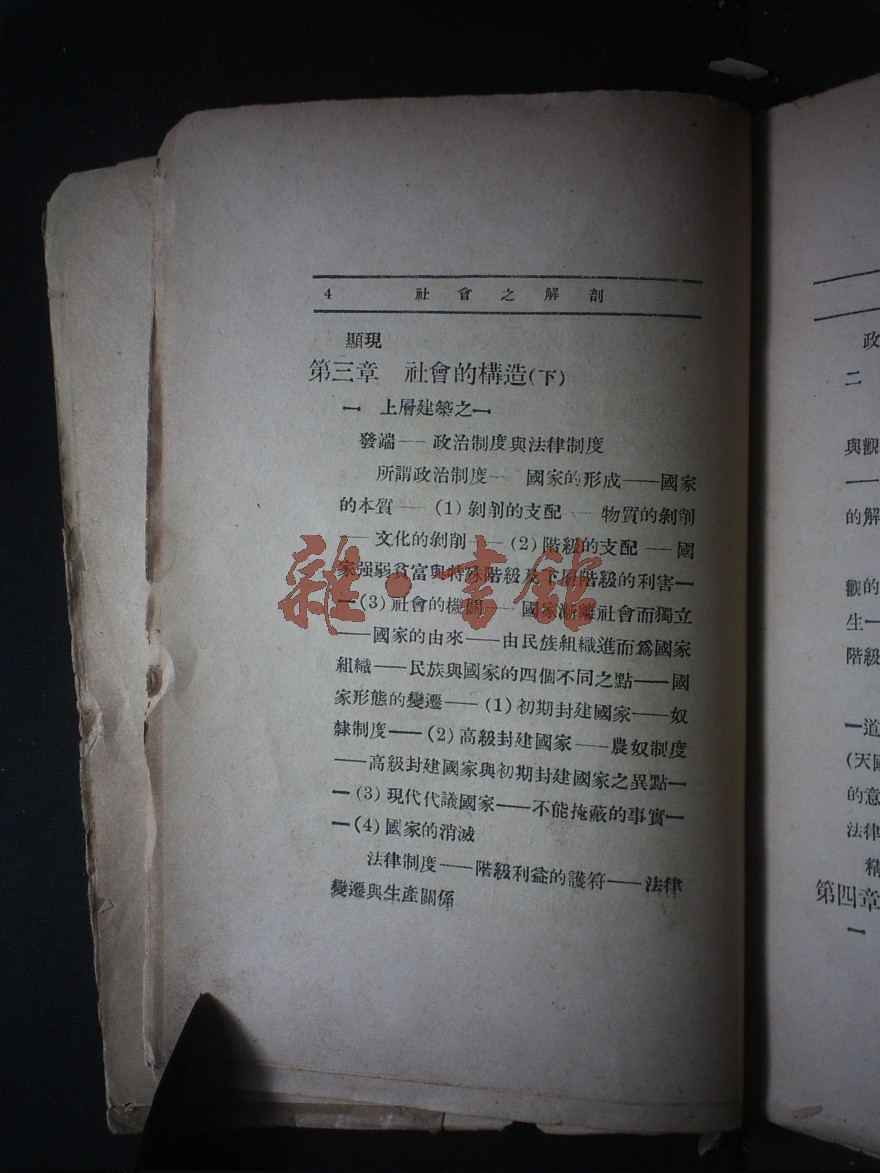 4 社會之解剖
顯現
第三章 社會的構造(下)
一 上層建築之一
發端——政治制度與法律制度
所謂政治制度——國家的形成——國家
的本質——(1)剝削的支配——物質的剝削
——文化的剝削——(2)階級的支配——國
家强弱貧富與特殊階級及下層階級的利害—
—(3)社會的機關——國家漸離社會而獨立
——國家的由來——由民族組織進而爲國家
組織——民族與國家的四個不同之點——國
家形態的變遷——(1)初期封建國家——奴
隸制度——(2)高級封建國家——農奴制度
——高級封建國家與初期封建國家之異點—
—(3)現代代議國家——不能掩蔽的事實—
—(4)國家的消滅
法律制度——階級利益的護符——法律
變遷與生產關係
雜·書館
政
二
與觀
——
的解
觀的
生—
階級
—道
(天國
的意
法律
精
第四章
一